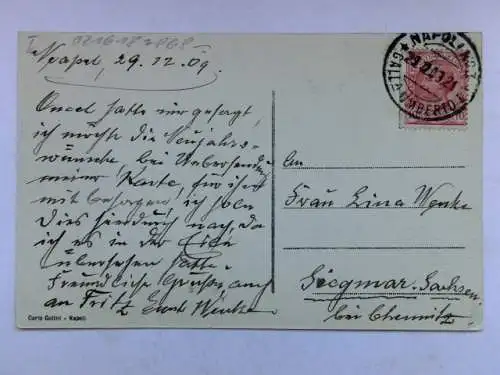 I 0216-18
Neapel, 29.12.09.
Onkel hatte mir gesagt,
ich möchte die Neujahrs-
wünsche bei Uebersendung
meiner Karte, für ihn
mit besorgen, ich hole
Dies hiedurch nach, da
ich es in der Eile
übersehen hatte.
Freundliche Grüsse, auch
an Fritz
Carlo Cotini - Napoli
NAPOLI
GALL. UMBERTO
An
Frau Lina Wenke
Siegmar, Sachsen.
bei Chemnitz